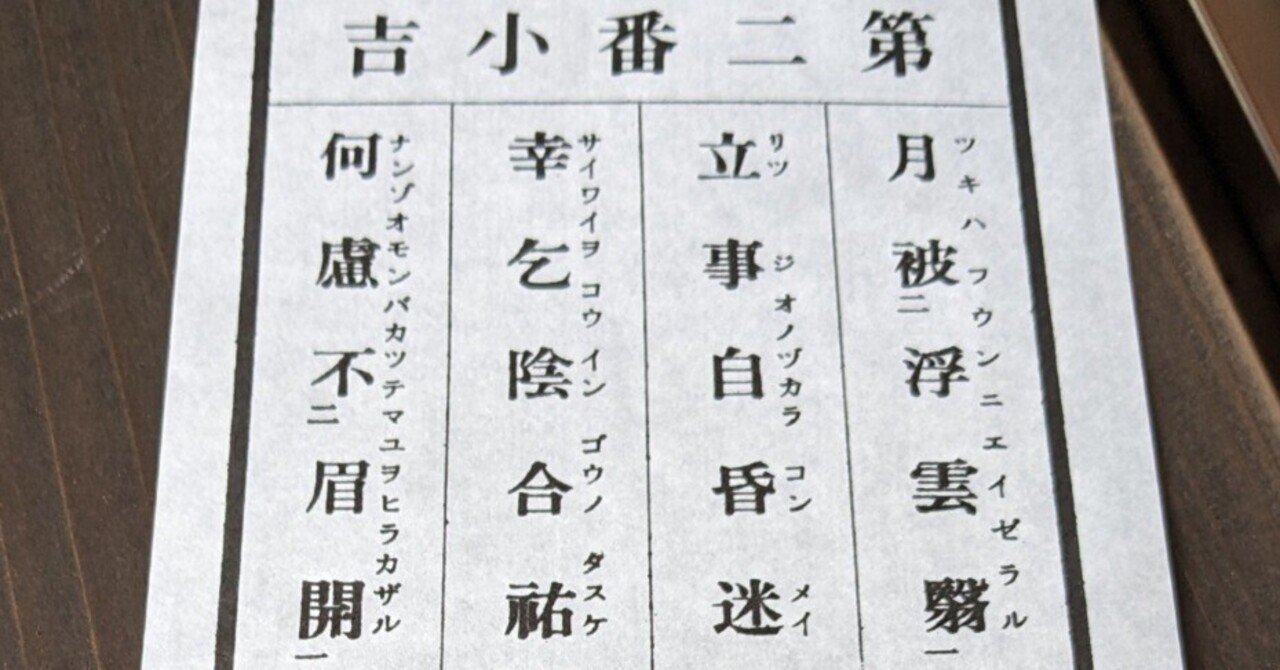 第二番小吉
月被二浮雲翳一
ツキハフウンニエイゼラル
立事自昏迷
リツジオノヅカラコンメイ
幸乞陰合祐
サイワイヲコウインゴウノダスケ
何慮不二眉開一
ナンゾオモンバカツテマユヲヒラカザル